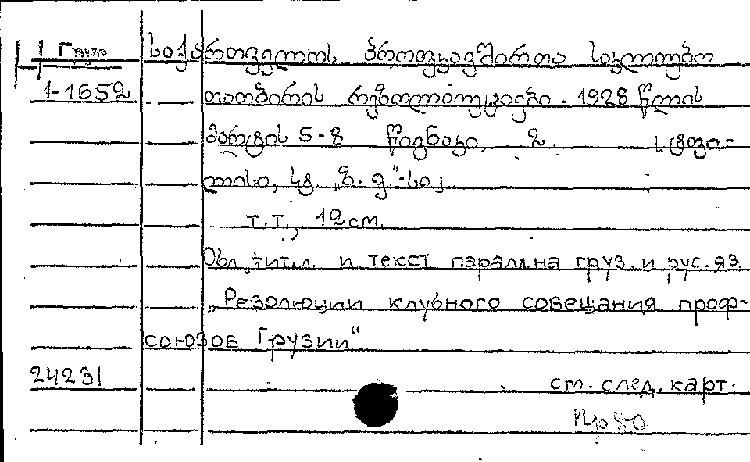 Груз საქართველოს პროფკავშირთა საკლუბო
1-1652 თათბირის რეზოლიუციები. 1928 წლის
მარტის 5-8 წიგნაკი 2.
ლისი, სტ.
т.т., 12 см.
Обл., тит.л. и текст паралл. на груз. и рус. яз.
„Резолюции клубного совещания проф-
союзов Грузии"
24231 см. след. карт.